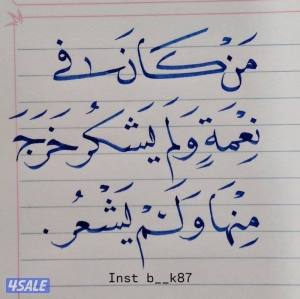 مَنْ كَانَ فى
نِعْمَةٍ وَلَمْ يَشكُر خَرَجَ
مِنْهَا وَلَمْ يَشْعُر.
Inst b__k87
4SALE